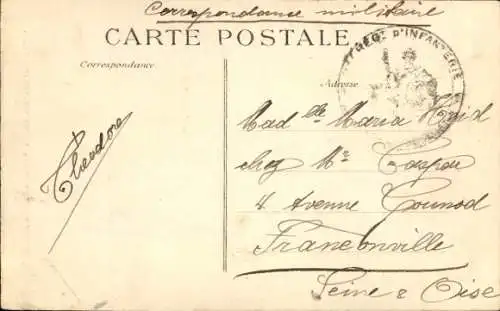 Correspondance militaire
CARTE POSTALE
REGT D'INFANTERIE
Correspondance
Adresse
Theodore
Mad elle Maria
chez Mr
4 Avenue Gounod
Franconville
Seine & Oise